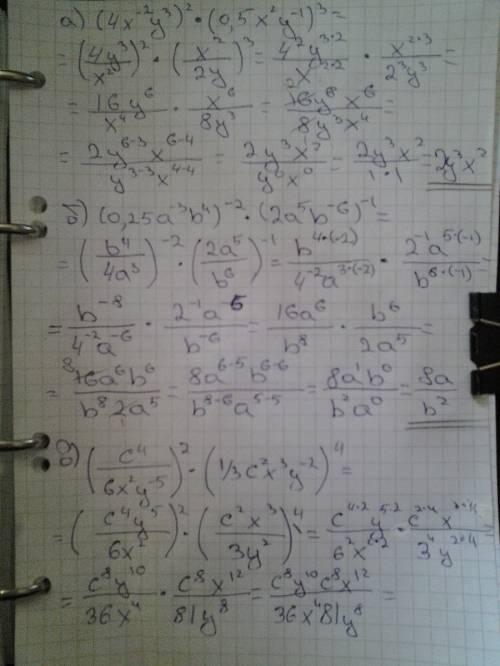 а) (4x⁻²y³)² · (0,5x²y⁻¹)³ =
= (4y³/x²)² · (x²/2y)³ = 4²y³·²/x²·² · x²·³/2³y³ =
= 16y⁶/x⁴ · x⁶/8y³ = 16y⁶x⁶/8y³x⁴ =
= 2y⁶⁻³x⁶⁻⁴/y³⁻³x⁴⁻⁴ = 2y³x²/y⁰x⁰ = 2y³x²/1·1 = 2y³x²
б) (0,25a⁻³b⁴)⁻² · (2a⁵b⁻⁶)⁻¹ =
= (b⁴/4a³)⁻² · (2a⁵/b⁶)⁻¹ = b⁴·⁽⁻²⁾/4⁻²a³·⁽⁻²⁾ · 2⁻¹a⁵·⁽⁻¹⁾/b⁶·⁽⁻¹⁾ =
= b⁻⁸/4⁻²a⁻⁶ · 2⁻¹a⁻⁵/b⁻⁶ = 16a⁶/b⁸ · b⁶/2a⁵ =
= 16a⁶b⁶/b⁸2a⁵ = 8a⁶⁻⁵b⁶⁻⁶/b⁸⁻⁶a⁵⁻⁵ = 8a¹b⁰/b²a⁰ = 8a/b²
(c⁴/6x²y⁻⁵)² · (1/3c²x³y⁻²)⁴ =
= (c⁴y⁵/6x²)² · (c²x³/3y²)⁴ = c⁴·²y⁵·²/6²x²·² · c²·⁴x³·⁴/3⁴y²·⁴ =
= c⁸y¹⁰/36x⁴ · c⁸x¹²/81y⁸ = c⁸y¹⁰c⁸x¹²/36x⁴81y⁸ =